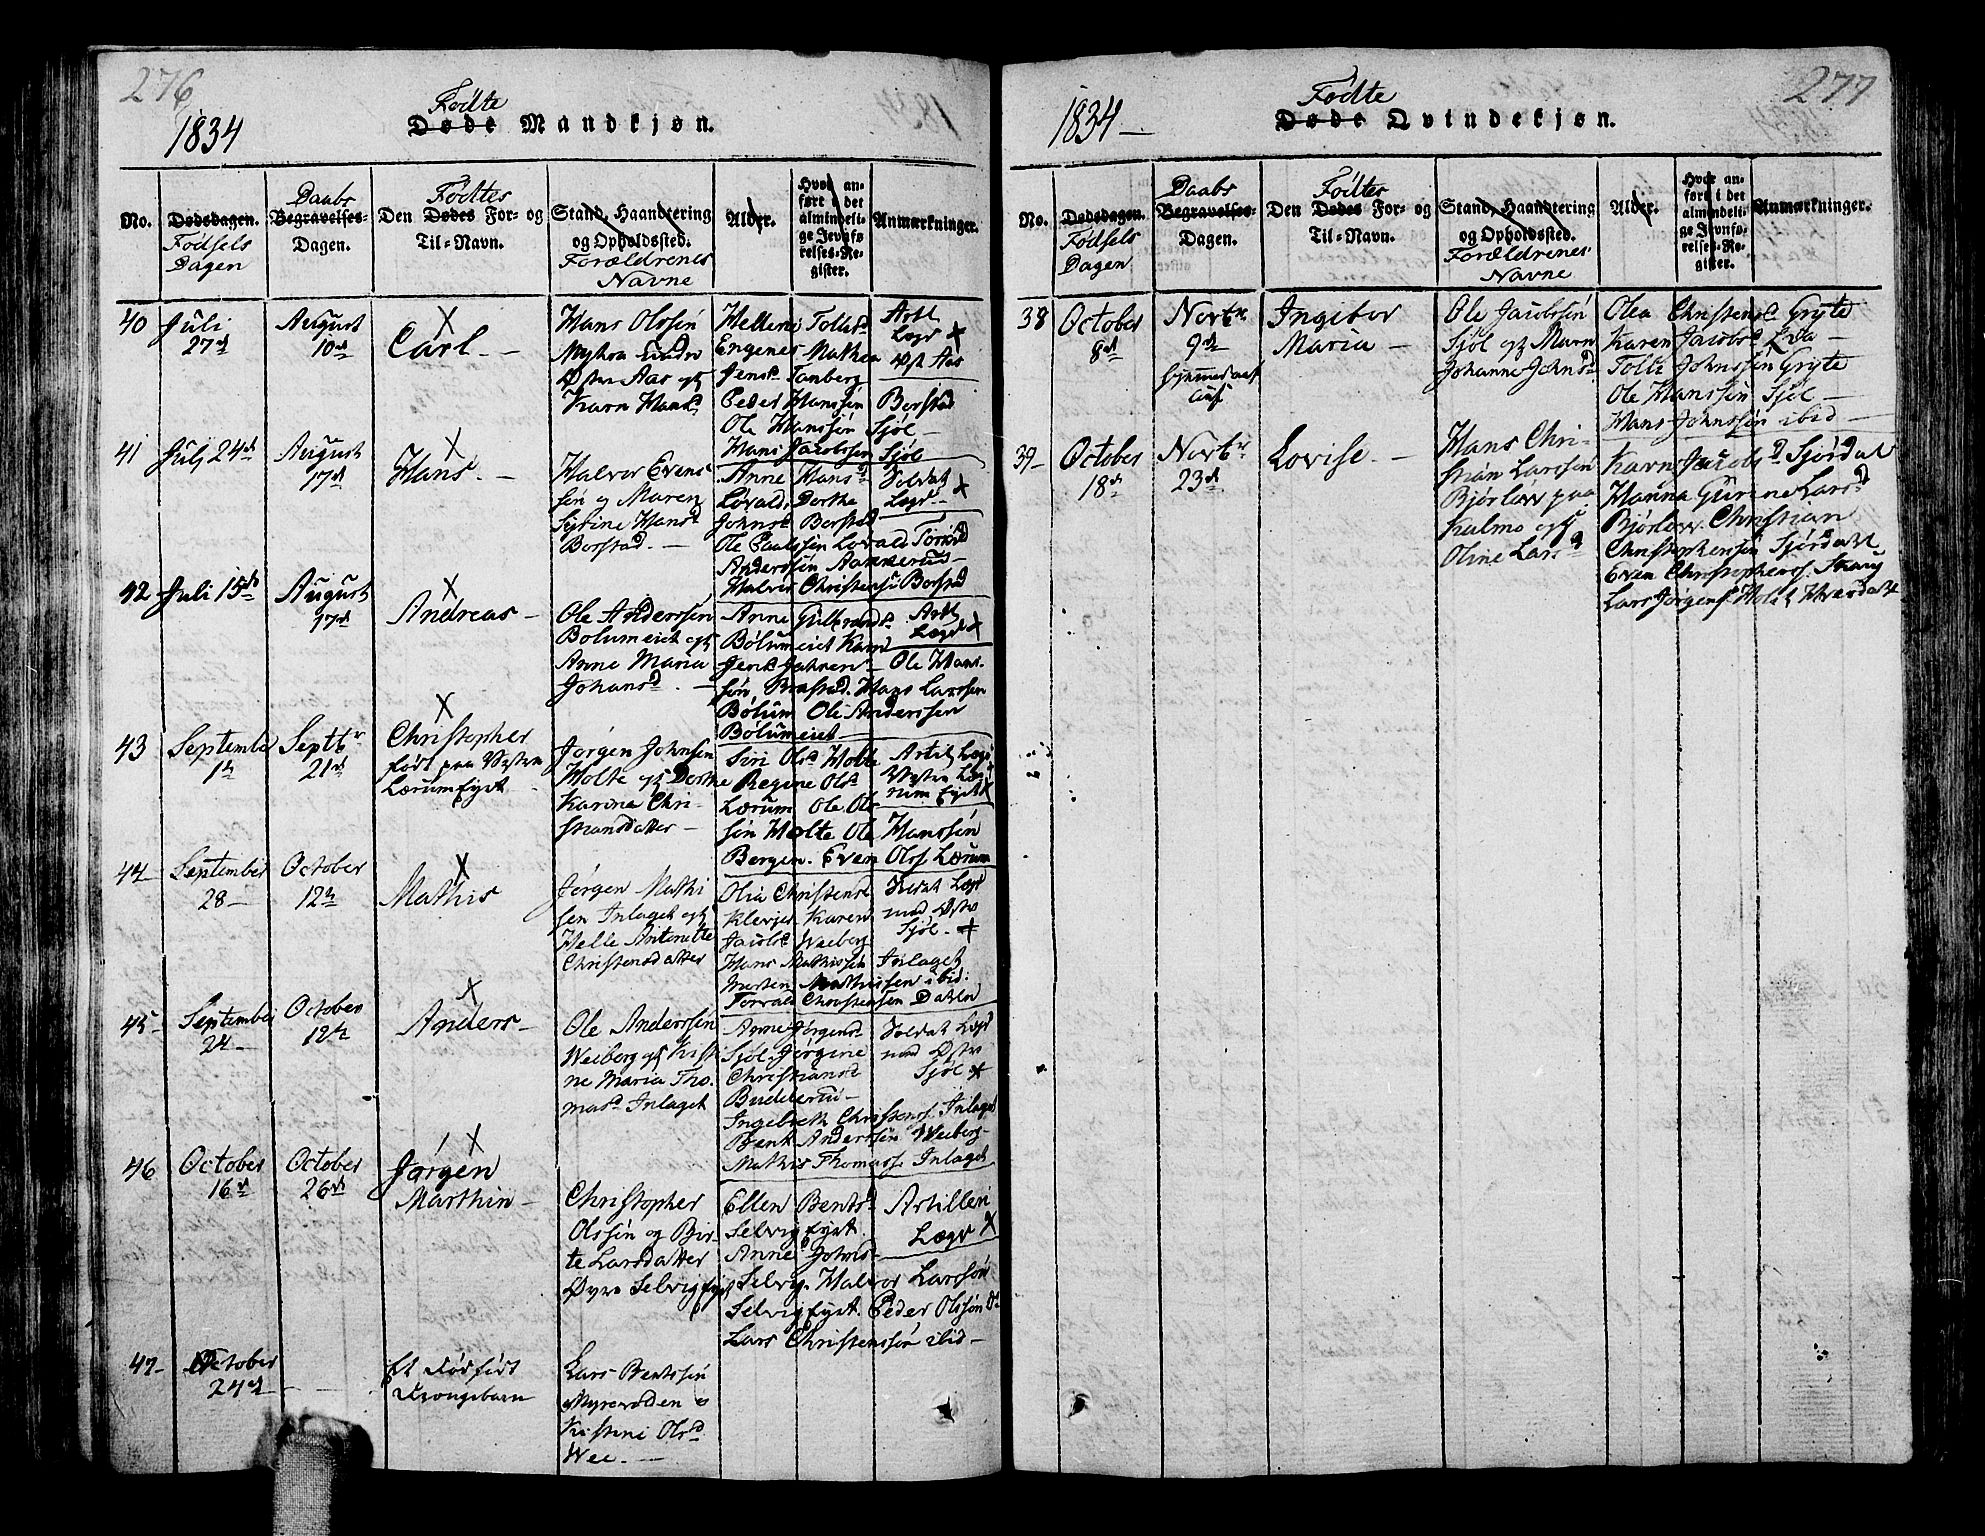 276
1834
Födte
Døde Mandkjøn.
No.
Dødsdagen.
Födsels
Dagen
Daabs
Begravelses-
Dagen.
Födtes
Den Dødes For- og
Til-Navn.
Stand, Haandtering
og Opholdssted.
Forældrenes
Navne
Alder.
Hvor an-
ført i det
almindeli-
ge Jevnfø-
relses-Re-
gister.
Anmærkninger.
40
Juli
27de
August
10de
Carl. -
Hans Olssön
Østre Aas og
Karn Hansd
Hellene
Engenes Mathea
Jensd Tanberg
Peder Hanssön Borstad
Ole Hanssön Sjöl -
Hans Jacobssen Sjöl
Artl
Lægd X
41
Julj 24de
August
17de
Hans. -
Halvor Evens
sön og Maren
Sybine Hansd
Borstad. -
Anne Hansd
Lovald, Dorthe
Johnsd Borstad
Ole Paulssön Lovald
Anderssön Aamerud -
Halvor Christenss Borstad
Soldat
Lægd - X
42
Juli 15de
August
17de
Andreas -
Ole Anderssön
Bolumeiet og
Anne Maria
Johansd. -
Anne Gulbrandsd
Bölumeiet Karn
Jensd Jahren - Ole Hans-
sön Borstad. Hans Larssen
Bölum Ole Anderssen
Bölumeiet -
Artl
Lægd X
43
September
1ste
Septbr
21de
Christopher
født paa Vestre
Lærumeyet -
Jørgen Johnsen
Holte og Dorthe
Karine Chri-
stiansdatter -
Siri Olsd Holte
Regine Olsd
Lærum Ole Ols
sön Holte Ole Hanssön
Bergen. Even Olss Lærum
Artil Lægd
Vestre Læ
rum Eyet X
44
September
28 -
October
12te
Mathis
Jørgen Mathi
sen Inlaget og
Helle Antonette
Christensdatter
Olia Christensd
Klevjer Karen
Jacobsd Weeberg
Hans Mathissen Inlaget
Morten Mathissen ibid:
Torvald Christensen Dahlen
Soldat Lægd
med Østre
Sjöl. - X
45
September
24 -
October
12te
Anders -
Ole Anderssön
Weiberg og Kisti
ne Maria Tho-
masd Inlaget
Anne Jörgensd
Sjöl. Jörgine
Christiansd
Budderud -
Ingebreth Christenss. Inlaget
Bent Anderssön Weiberg -
Mathis Thomass. Inlaget
Soldat Lægd
med Østre
Sjöl X
46
October
16de
October
26de
Jørgen
Marthin -
Christopher
Olssön og Bir-
te Larsdatter
Øvre Selvigeyet
Ellen Bentsd
Selvigeyet.
Anne Johnsd
Selvig. Halvor Larssön
Selvigeyet. Peder Olssön
Lars Christenssön ibid -
Artilleri
Lægd X
47 -
October
24de
Et dödfödt
Drengebarn
Lars Bentssön
Myrevolden
Kistine Olsd
Wee. -
277
1834 -
Födte
Døde Qvindekjøn.
No.
Dødsdagen.
Födsels
Dagen
Daabs
Begravelses-
Dagen.
Födtes
Den Dødes For- og
Til-Navn.
Stand, Haandtering
og Opholdssted.
Forældrenes
Navne
Alder.
Hvor an-
ført i det
almindeli-
ge Jevnfø-
relses-Re-
gister.
Anmærkninger.
38
October
8de
Novbr
9de
hjemmedøbt
Ingebor
Maria -
Ole Jacobssön
Sjöl og Marn
Johanne Johnsd
Olea Christensd Gryte
Karen Jacobsd
Tolle Johnssön Gryte
Ole Hanssön Sjöl -
Hans Johnssön ibid -
39 -
October
18de
Novbr
23de
Lovise. -
Hans Chri-
stian Larssön
Bjørløw paa
Kalmo og
Oline Larsd
Karn Jacobsd Sjördal
Hanna Gurine Larsd
Bjørløw. Christian
Christophersön Sjördahl
Even Christopherss. Stray
Lars Jørgens Holst Hverdahl